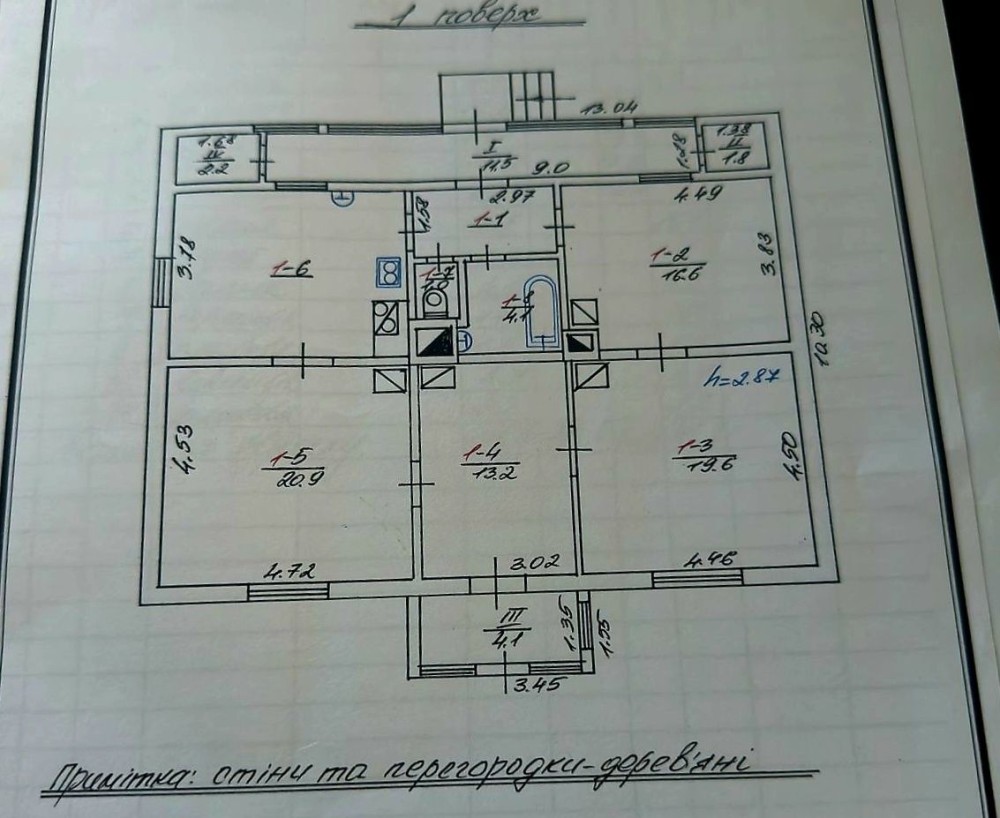 1 поверх
13.04
1.68
IV
2.2
I
11.5
9.0
1.28
1.38
II
1.8
2.97
1.58
1-1
4.49
3.78
1-6
1-7
1-2
16.6
3.83
4.1
10.30
h=2.87
4.53
1-5
20.9
1-4
13.2
1-3
19.6
4.50
4.72
3.02
4.46
III
4.1
1.35
1.55
3.45
Примітка: стіни та перегородки-дерев'яні